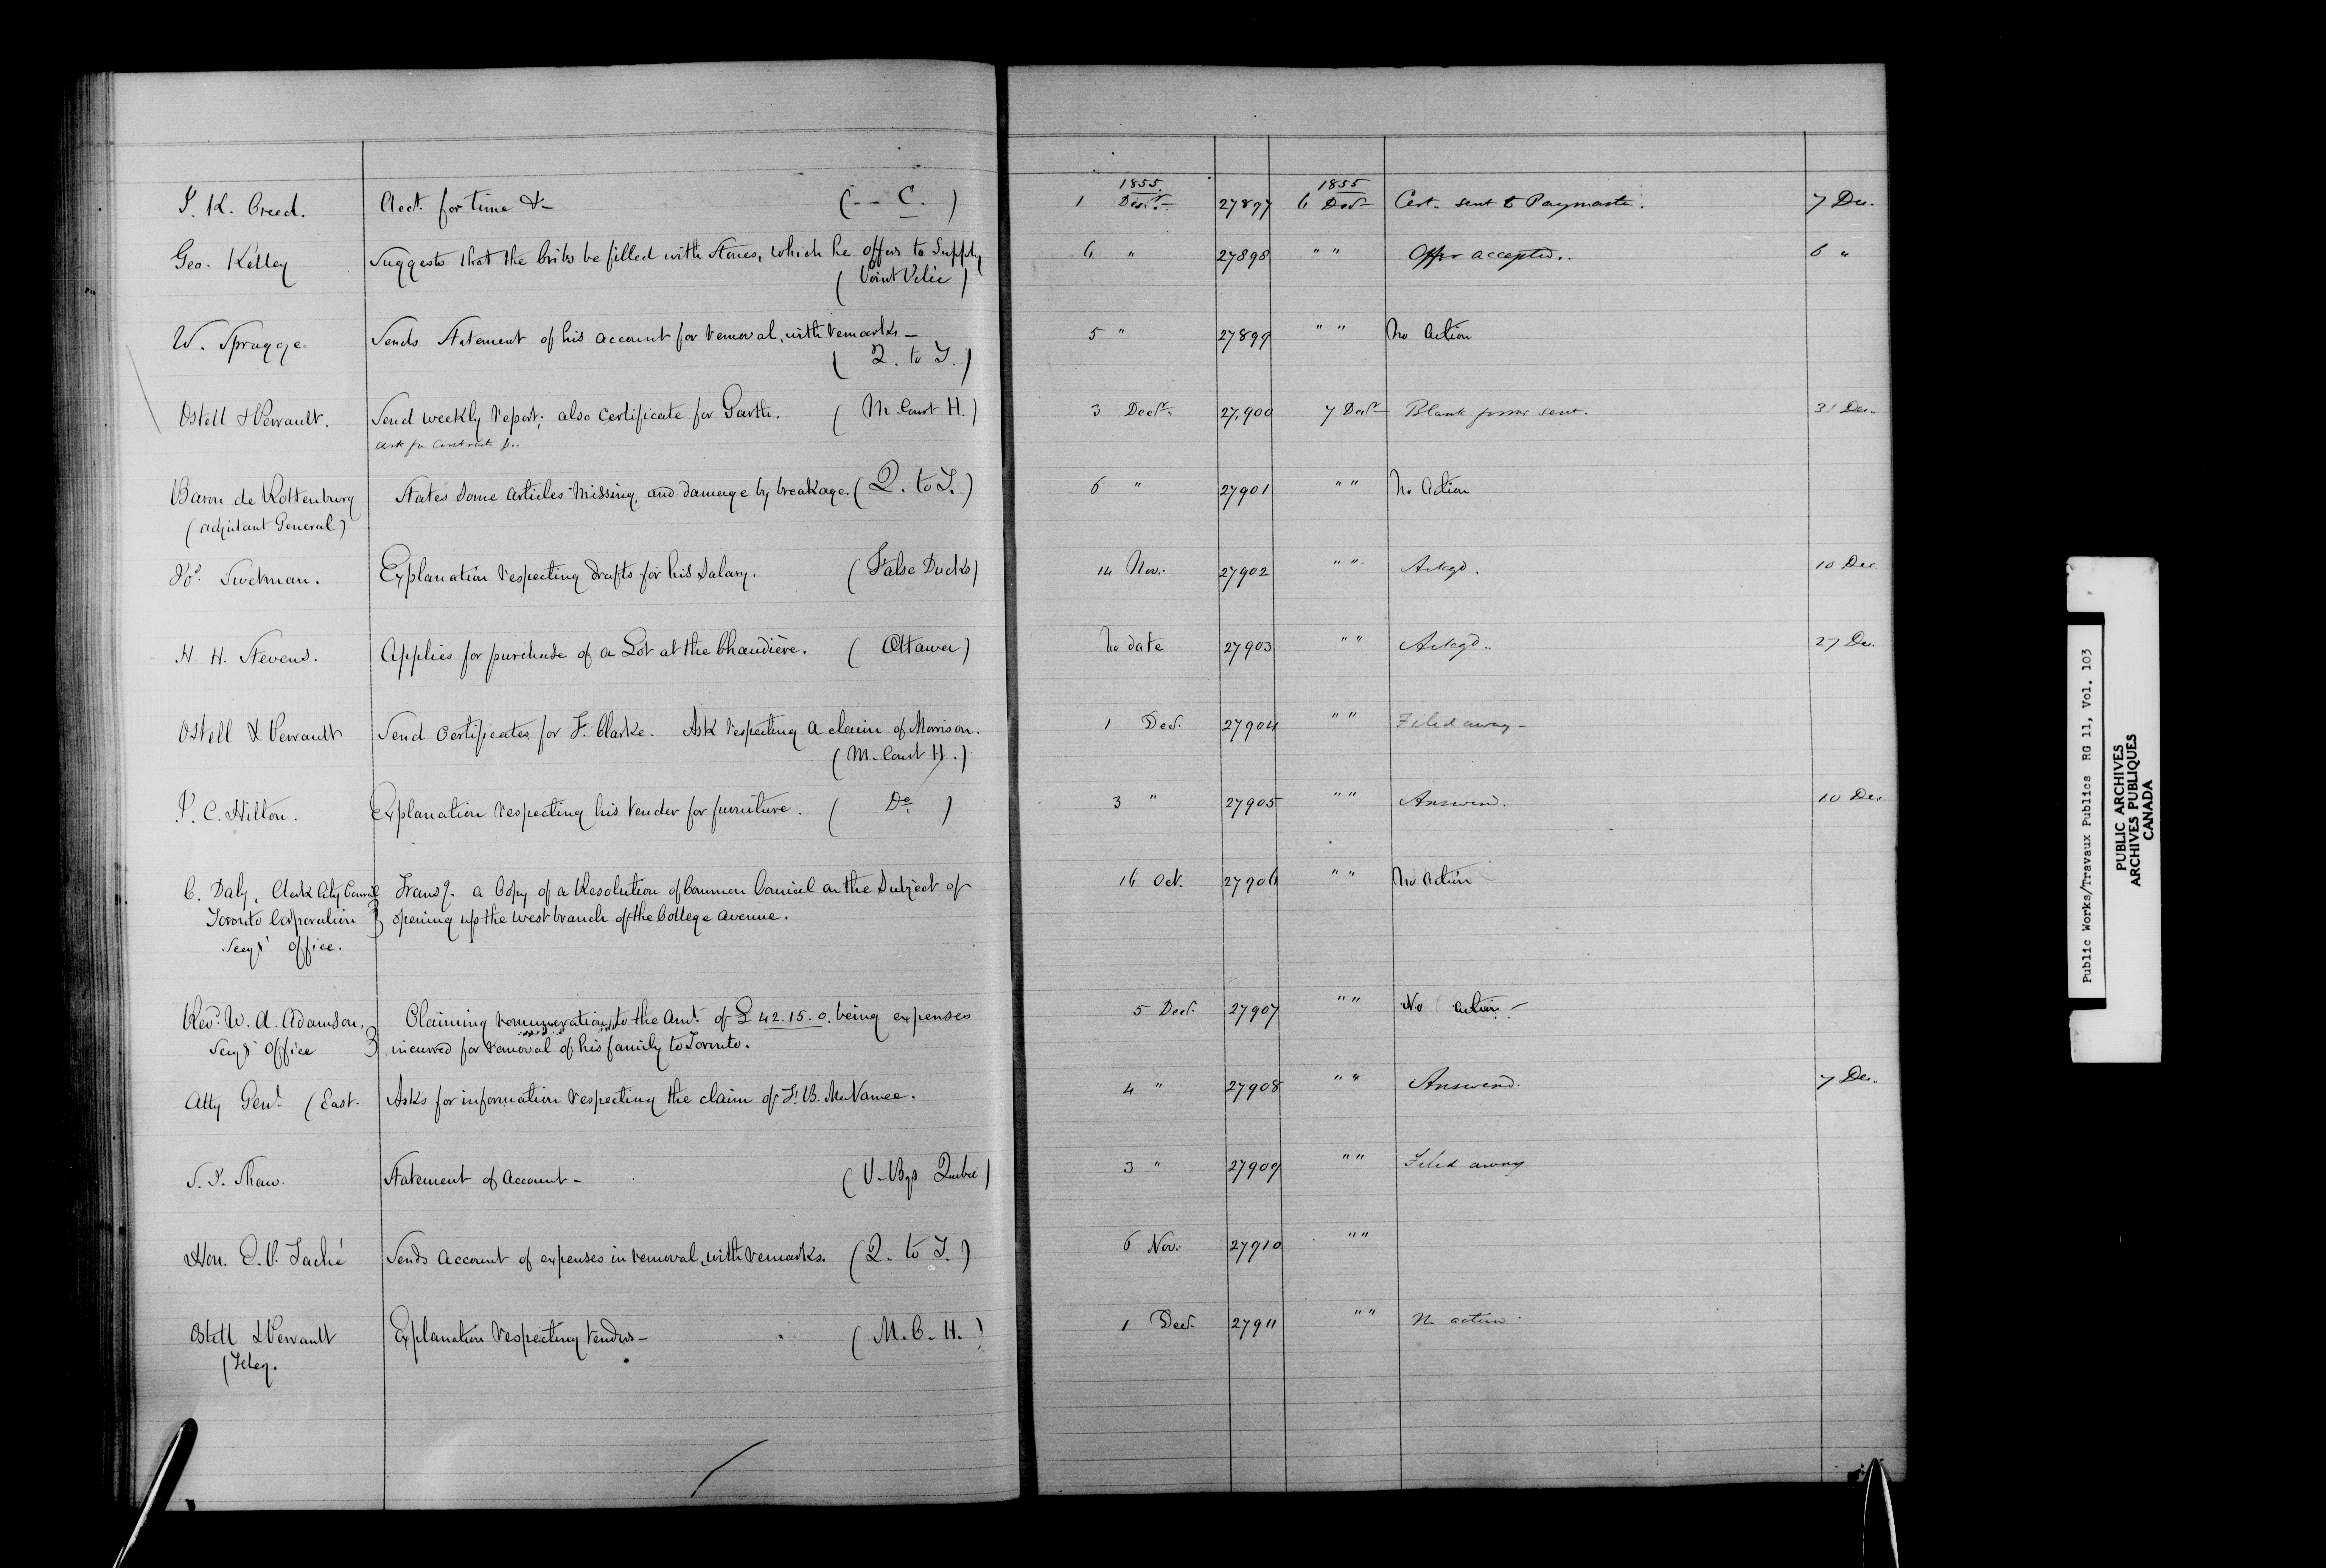 1855 1855
J. K. Creed. Acct. for time &- ( - - C. ) 1 Decr. 27897 6 Decr Cert. sent to Paymaster. 7 Dec.
Geo. Kelley Suggests that the cribs be filled with Stones, which he offers to Supply 6 " 27898 " " Offer accepted.. 6 "
( Point Pelée )
W. Spragge. Sends Statement of his account for removal, with remarks - 5 " 27899 " " No action
( Q. to T. )
Ostell & Perrault. Send weekly report; also certificate for Garth. ( M. Court H. ) 3 Decr. 27,900 7 Decr Blank forms sent. 31 Dec.
ask for Contract &..
Baron de Rottenburg States some articles missing, and damage by breakage. ( Q. to T. ) 6 " 27901 " " No action
( Adjutant General )
Jos. Swetman. Explanation respecting drafts for his salary. ( False Ducks ) 14 Nov. 27902 " " Ackgd. 10 Dec
H. H. Stevens. Applies for purchase of a Lot at the Chaudière. ( Ottawa ) No date 27903 " " Ackgd.. 27 Dec.
Ostell & Perrault Send certificates for F. Clarke. Ask respecting a claim of Morrison. 1 Dec. 27904 " " Filed away -
( M. Court H. )
J. C. Hilton. Explanation respecting his tender for furniture. ( Do. ) 3 " 27905 " " Answered. 10 Dec.
C. Daly, Clerk City Council Transg. a Copy of a Resolution of Common Council on the Subject of 16 Oct. 27906 " " No action
Toronto Corporation opening up the west branch of the College Avenue.
Secys' Office.
Revd. W. A. Adamson, Claiming remuneration to the Amt. of £42.15.0. being expenses 5 Decr. 27907 " " No action -
Secys' Office incurred for removal of his family to Toronto.
Atty Genl. (East. Asks for information respecting the claim of F. B. McNamee. 4 " 27908 " " Answered. 7 Dec.
S. J. Shaw. Statement of Account - ( P. Bgs Quebec ) 3 " 27909 " " Filed away
Hon. E. P. Taché Sends account of expenses in removal, with remarks. ( Q. to T. ) 6 Nov. 27910 " "
Ostell & Perrault Explanation respecting tenders - ( M. C. H. ) 1 Decr. 27911 " " No action.
(Teleg.
Public Works/Travaux Publics RG 11, Vol. 103
PUBLIC ARCHIVES
ARCHIVES PUBLIQUES
CANADA